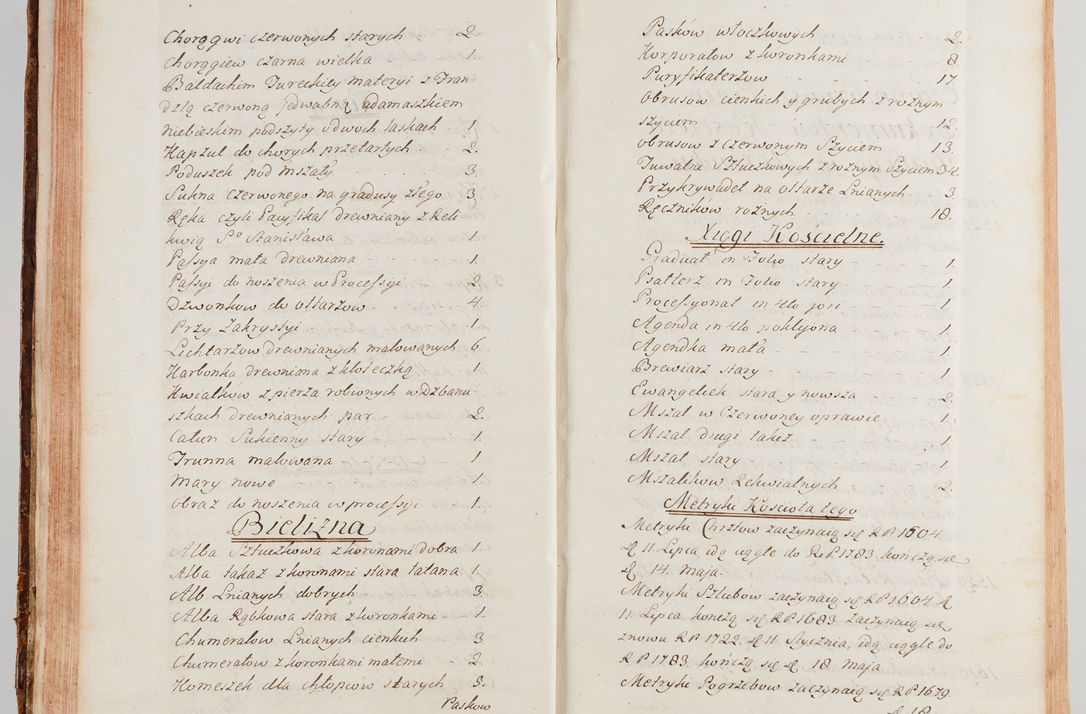 Chorągwi czerwonych starych 2.
Chorągiew czarna wielka 1.
Baldachim Tureckiey materyi z Fran
dzlą czerwoną jedwabną adamaszkiem
niebieskim podszyty o dwoch laskach 1.
Kapzul do chorych przetartych 2.
Poduszek pod mszały 3.
Sukna czerwonego na gradusy złego 3
Ręka czyli Pacyfikał drewniany z Reli
kwią S.o Stanisława 1.
Passya mała drewniana 1.
Passyi do noszenia w Processyi 2.
Dzwonkow do ołtarzow 4.
Przy Zakrystyi 1.
Lichtarzow drewnianych malowanych 6.
Karbonka drewniana z kłoteczką
Kwiatków z pierza robionych w Dzbanu
szkach drewnianych par 2.
Całun Sukienny stary 1.
Trunna malowana 1.
Mary nowe 1.
Obraz do noszenia w processyi 1.
Bielizna
Alba Sztuczkowa z koronami dobra 1.
Alba takaż z koronami stara łatana 1.
Alb Lnianych dobrych 3
Alba Rąbkowa stara z koronkami 1.
Chumerałow Lnianych cienkich 3
Chumerałow z koronkami małemi 2.
Komeszek dla chłopców starych 8.
Pasków
Pasków włoczkowych 2.
Korporałow z koronkami 8.
Puryfikaterzow 17.
Obrusow cienkich y grubych z rożnym
szyciem 12.
Obrusow z czerwonym Szyciem 13.
Tuwalne Sztuczkowych z rożnym Szyciem 34.
Przykrywadeł na ołtarze Lnianych 3.
Ręczników rożnych 18.
Xięgi Kościelne.
Graduał in Folio stary 1.
Psałterz in Folio stary 1.
Processyonał in 4to pori 1.
Agenda in 4to poklijona 1.
Agendka mała 1.
Brewiarz stary 1.
Ewangeliek stara y nowsza 2.
Mszał w Czerwoney oprawie 1.
Mszał drugi takiż 1.
Mszał stary 1.
Mszalików Rekwialnych 2.
Metryki Kościoła tego
Metryki Chrztow zaczynaią się R P 1604.
d. 11. Lipca idą ciągle do R P 1783 kończą się
d. 14. Maja.
Metryki Szlubow zaczynaią się R P 1604. d.
11. Lipca kończą się R P 1683 zaczynaią się
znowu R P 1722. d. 11. Stycznia, idą ciągle do
R P 1783. kończą się d. 18 maja.
Metryki Pogrzebow zaczynaią się R P 1679.